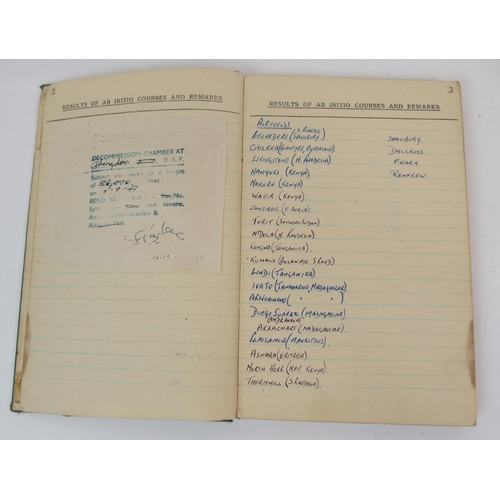 2
RESULTS OF AB INITIO COURSES AND REMARKS
DECOMPRESSION CHAMBER AT
Abingdon R.A.F.
Subject was taken to a height
of feet
on
BEND Yes/No.
Severe.
&
3
RESULTS OF AB INITIO COURSES AND REMARKS
AIRFIELDS
BELVEDERE (SALISBURY S. RHODE) SHAWBURY.
CHILEKA (BLANTYRE, NYASALAND) DALCROSS.
LIVINGSTONE (N. RHODESIA) FEARN
NANYUKI (KENYA) RENFREW.
NAKURU (KENYA)
WAJIR (KENYA).
ZANZIBAR
TORIT (SOUTHERN SUDAN)
N'DOLA (N. RHODESIA)
KONGWA (TANGANIKA).
KUMALO (BULAWAYO, S. RHOD).
LINDI (TANGANIKA)
IVATO (TANANARIVO, MADAGASCAR)
ARIVONIMAMO ( " " )
DIEGO SUAREZ (MADAGASCAR)
(ANDRAKAKA)
ARRACHART (MADAGASCAR)
PLAISANCE (MAURITIUS)
ASMARA (ERITREA)
NORTH HORR (N.F.P. KENYA)
THORNHILL (S. RHODESIA)